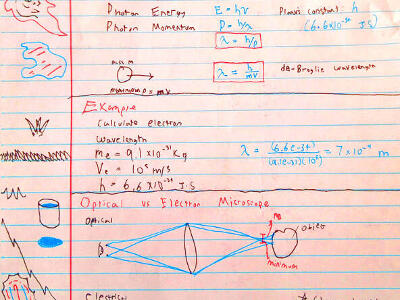 Photon Energy E = hν Planks constant h
Photon Momentum P = h/λ (6.6x10⁻³⁴ J.S)
λ = h/p
mass m
momentum p = mv
λ = h/mv de-Broglie wavelength
Example
Calculate electron
wavelength
mₑ = 9.1 x10⁻³¹ Kg
Vₑ = 10⁵ m/s
h = 6.6 x10⁻³⁴ J.S
λ = (6.6e-34)/(9.1e-31)(10⁵) = 7 x10⁻⁹ m
Optical vs Electron Microscope
Optical
Object
minimum
Electrical